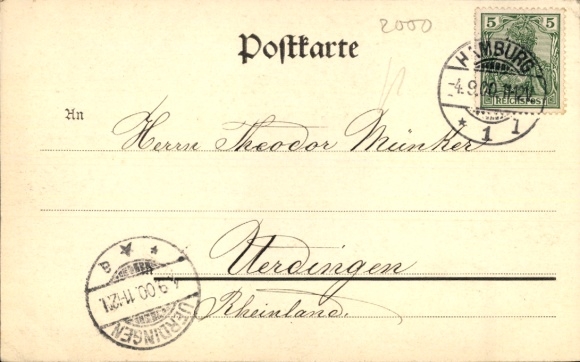 2000
Postkarte
5 5
REICHSPOST
HAMBURG
-4.9.00. 11-12V.
* 1 1
An
Herrn Theodor Münker
Uerdingen
Rheinland.
UERDINGEN
4.9.00. 11-12V.
* * B